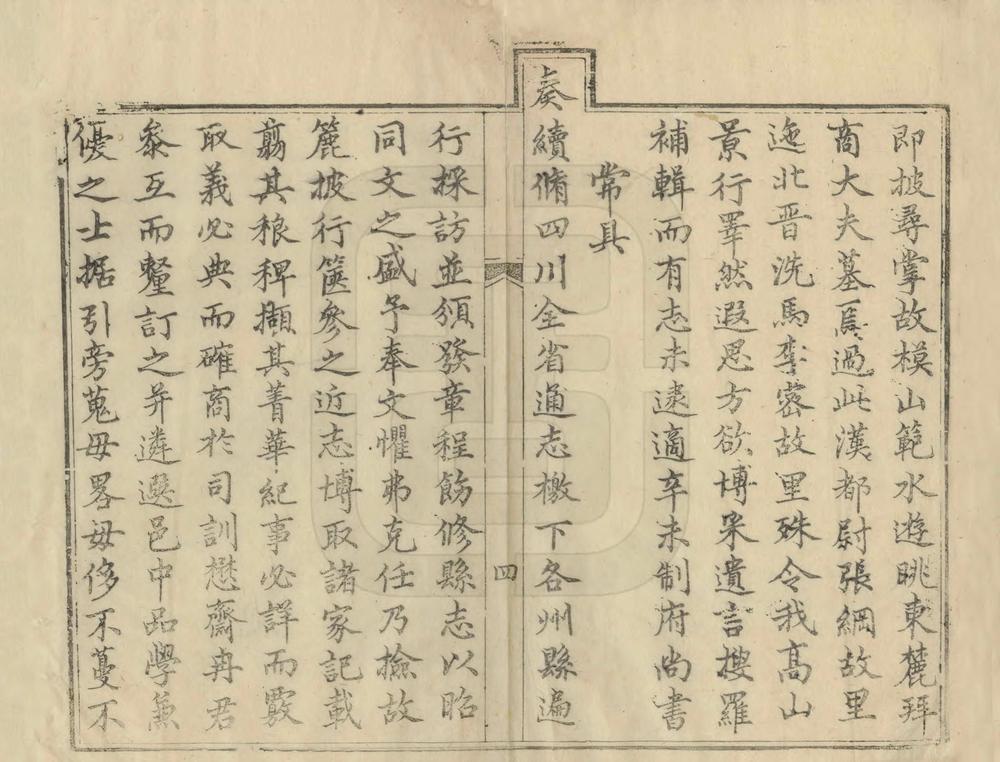 即披尋掌故模山範水遊眺東麓拜
商大夫墓焉過此漢都尉張綱故里
迤北晋洗馬李密故里殊令我高山
景行睪然遐思方欲博采遺言搜羅
補輯而有志未逮適辛未制府尚書
常具
奏續脩四川全省通志檄下各州縣遍
四
行採訪並頒發章程飭修縣志以昭
同文之盛予奉文懼弗克任乃撿故
簏披行篋參之近志博取諸家記載
翦其稂稗擷其菁華紀事必詳而覈
取義必典而確商於司訓懋齋冉君
叅互而釐訂之并遴選邑中品學兼
優之士据引旁蒐毋畧毋侈不蔓不